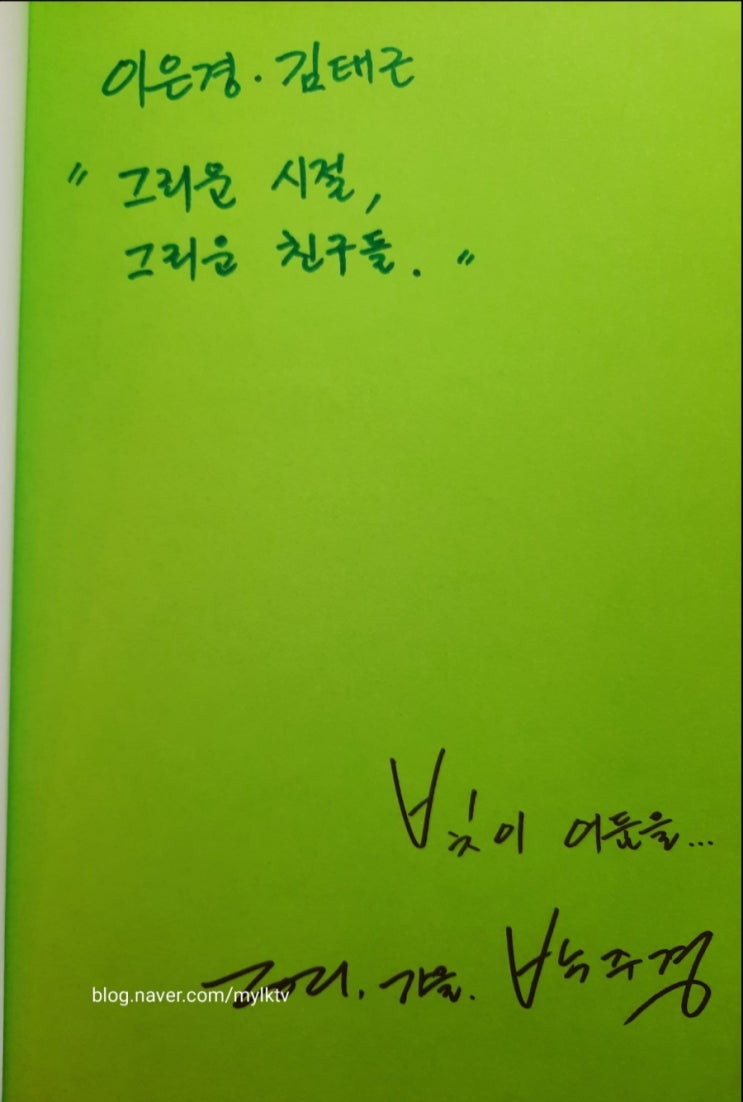 이은경 · 김태근
" 그리운 시절,
그리운 친구들. "
빛이 어둠을...
2021. 가을. 박주경
blog.naver.com/mylktv